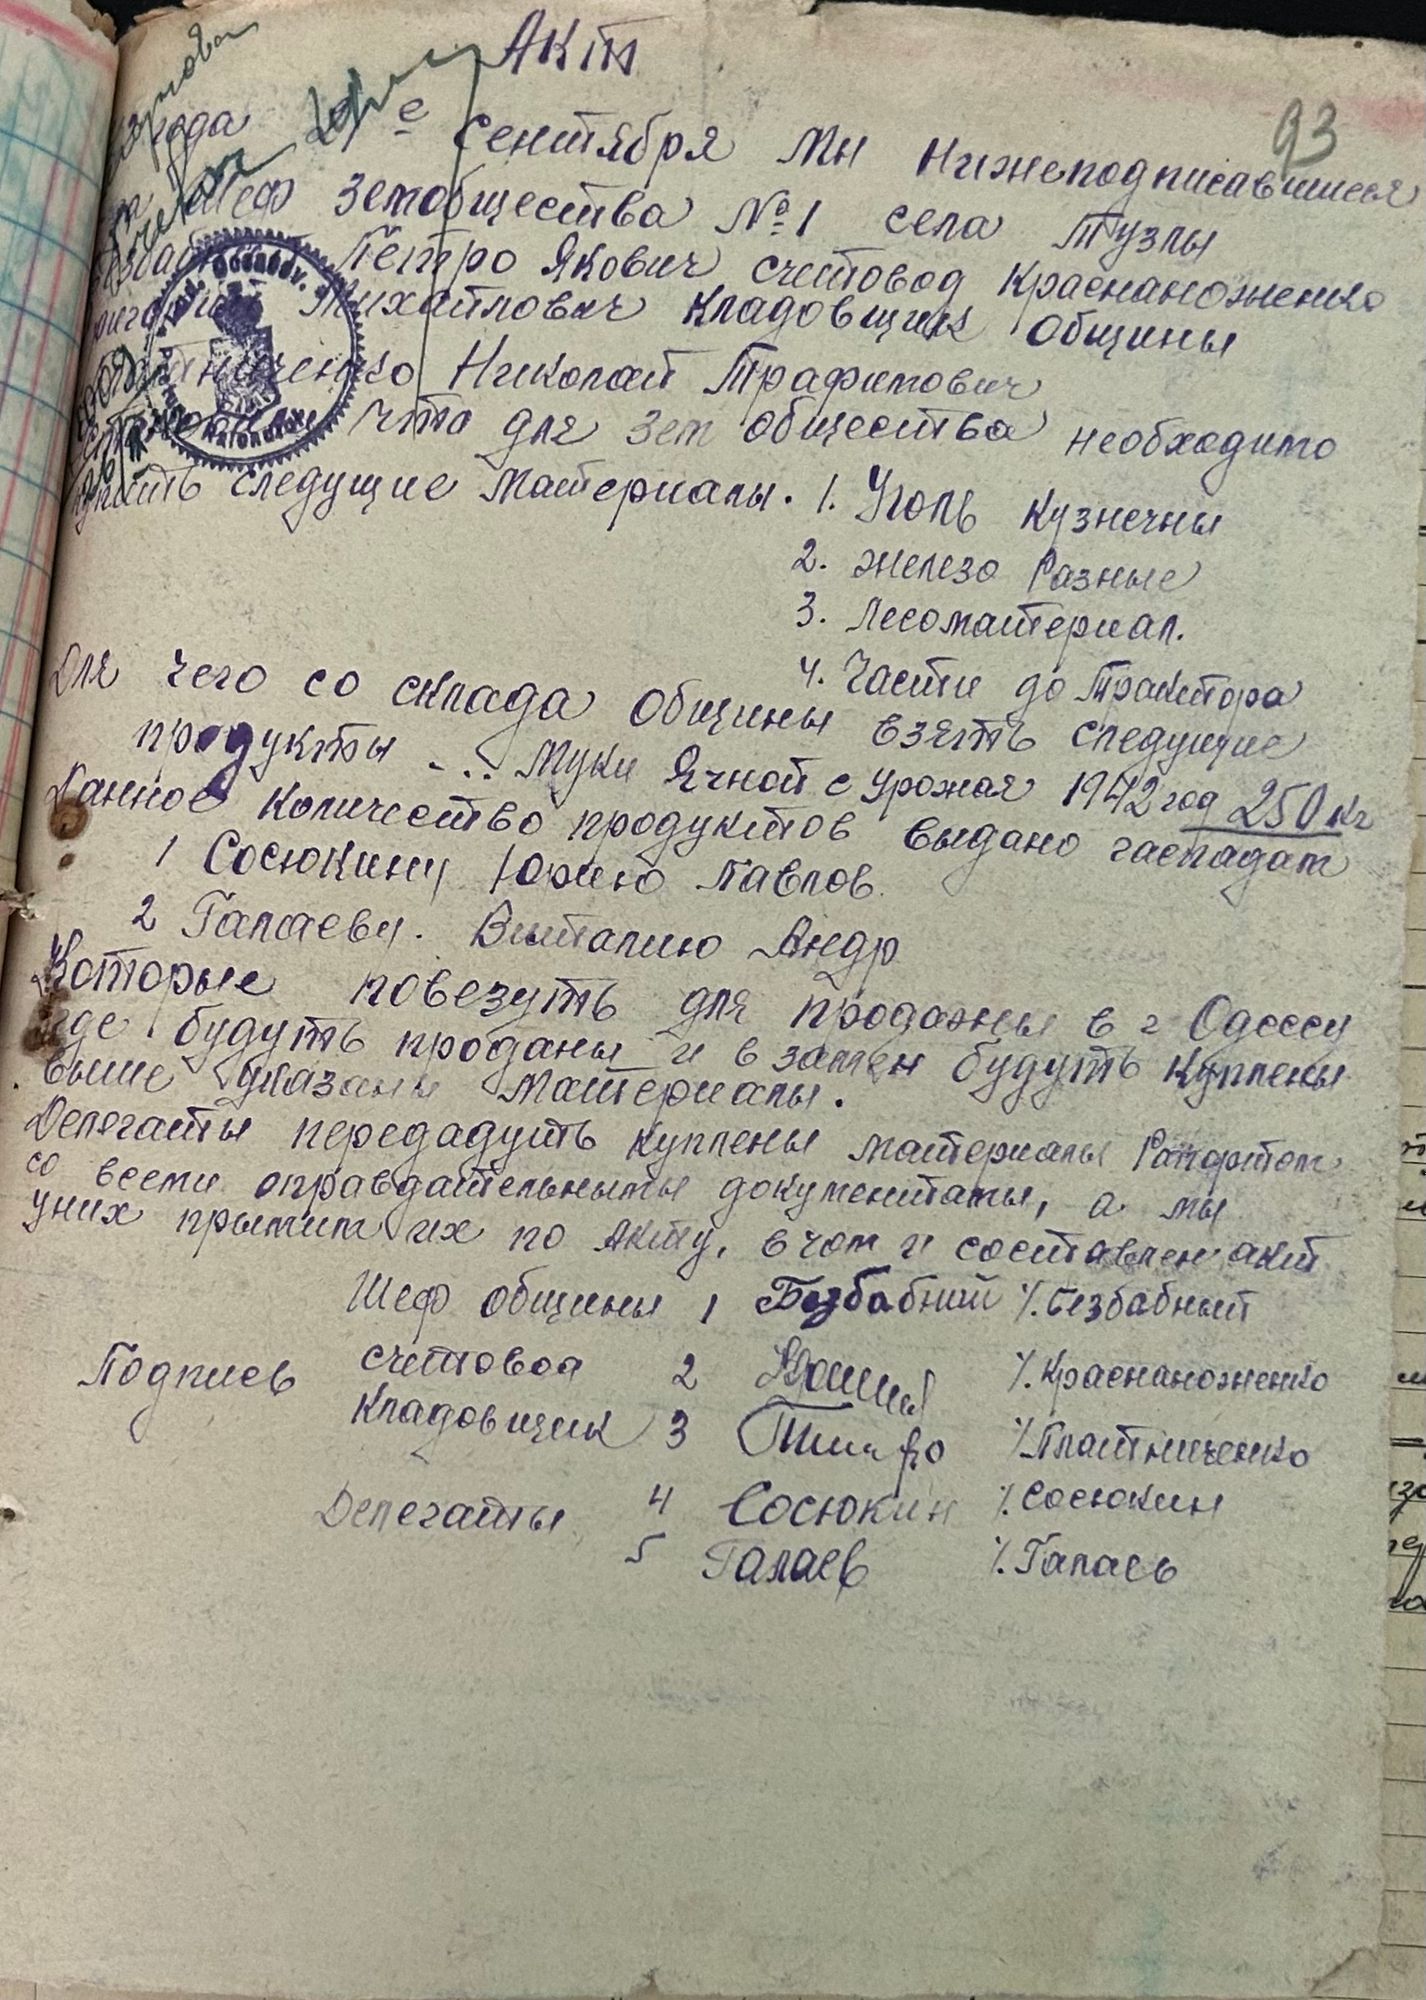 Акт
93
года е сентября Мы Нижеподписавшиеся
Шеф Земобщества №1 села Тузлы
Петро Якович счетовод Краснаноженко
Михайлович кладовщик общины
Николай Трафимович
что для Зем общества необходимо
следущие Материалы. 1. Уголь кузнечны
2. Железо Разные
3. Лесоматериал.
4. Части до Трактора
Для чего со склада общины взять следущие
продукты - .. Муки Ячной с урожая 1942 год 250 кг
Данное количество продуктов выдано гаспадам
1 Сосюкину Юрию Павлов.
2 Галаеву. Виталию Андр
Которые повезуть для продажы в г Одессу
где будуть проданы и в замен будуть куплены
выше указаны Материалы.
Делегаты передадуть куплены материалы Рапортом
со всеми оправдательнымы документамы, а мы
уних прымим их по акту, в чом и составлен акт
Шеф общины 1 Безбабний /. Безбабный
Подписъ счетовод 2 /. Краснаноженко
кладовщик 3 /. Платниченко
Делегаты 4 Сосюкин /. Сосюкин
5 Галаев /. Галаев